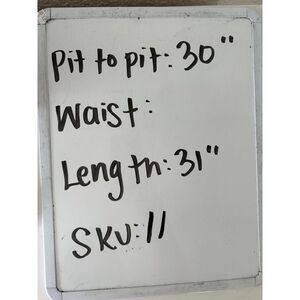 Pit to pit: 30"
Waist:
Length: 31"
SKU: 11